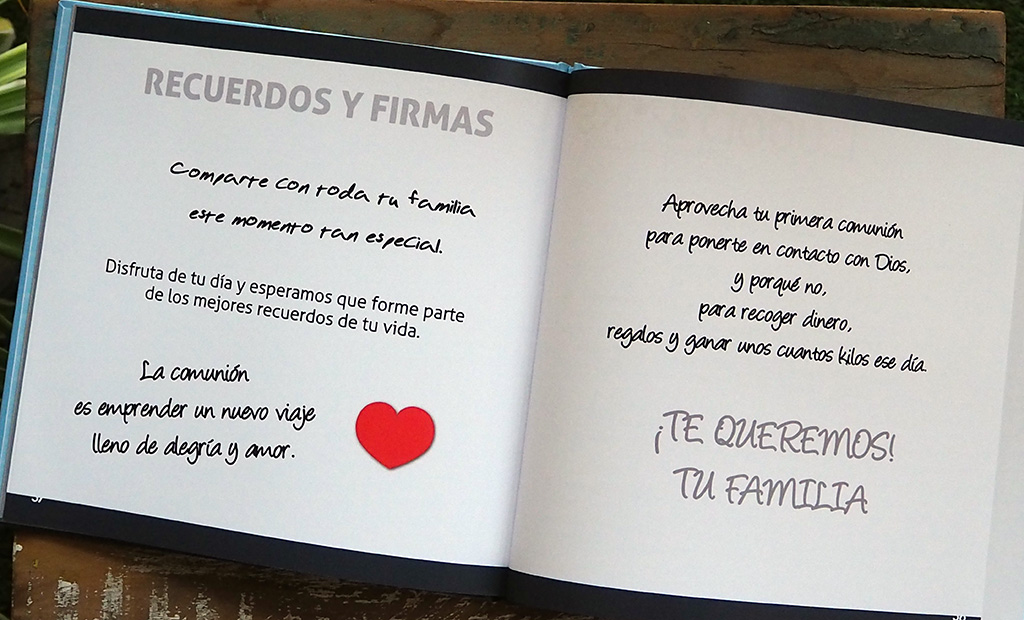 RECUERDOS Y FIRMAS
Comparte con toda tu familia
este momento tan especial.
Disfruta de tu día y esperamos que forme parte
de los mejores recuerdos de tu vida.
La comunión
es emprender un nuevo viaje
lleno de alegría y amor.
Aprovecha tu primera comunión
para ponerte en contacto con Dios,
y porqué no,
para recoger dinero,
regalos y ganar unos cuantos kilos ese día.
¡TE QUEREMOS!
TU FAMILIA